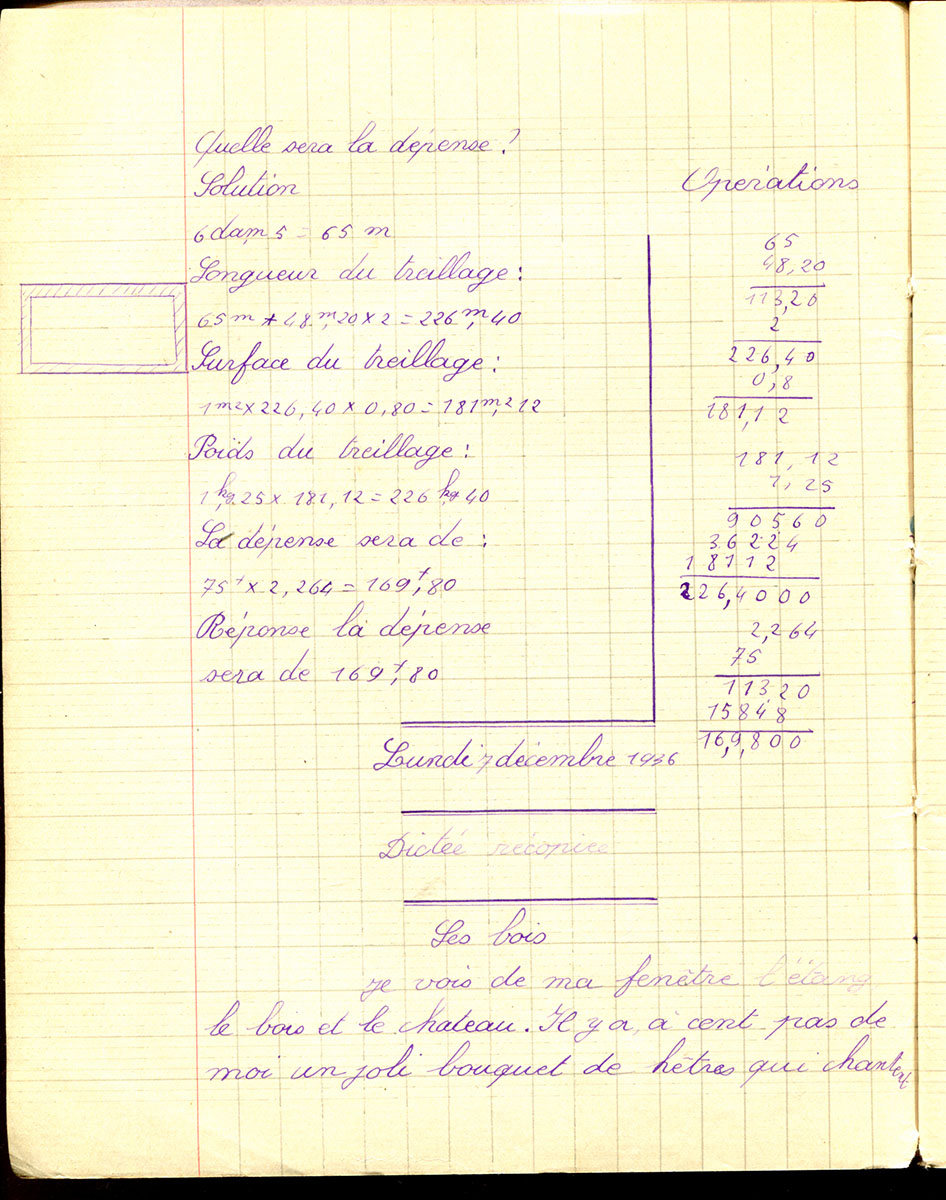 Quelle sera la dépense ?
Solution
6dam,5 = 65 m
Longueur du treillage :
65m + 48m,20 x 2 = 226m,40
Surface du treillage :
1m2 x 226,40 x 0,80 = 181m2,12
Poids du treillage :
1kg,25 x 181,12 = 226kg,40
La dépense sera de :
75f x 2,264 = 169f,80
Réponse la dépense
sera de 169f,80
Opérations
65
48,20
113,20
2
226,40
0,8
181,12
181,12
1,25
90560
36224
18112
226,4000
2,264
75
11320
15848
169,800
Lundi 7 décembre 1936
Dictée récopiée
Les bois
Je vois de ma fenêtre l'étang
le bois et le chateau. Il y a, à cent pas de
moi un joli bouquet de hêtres qui chantent